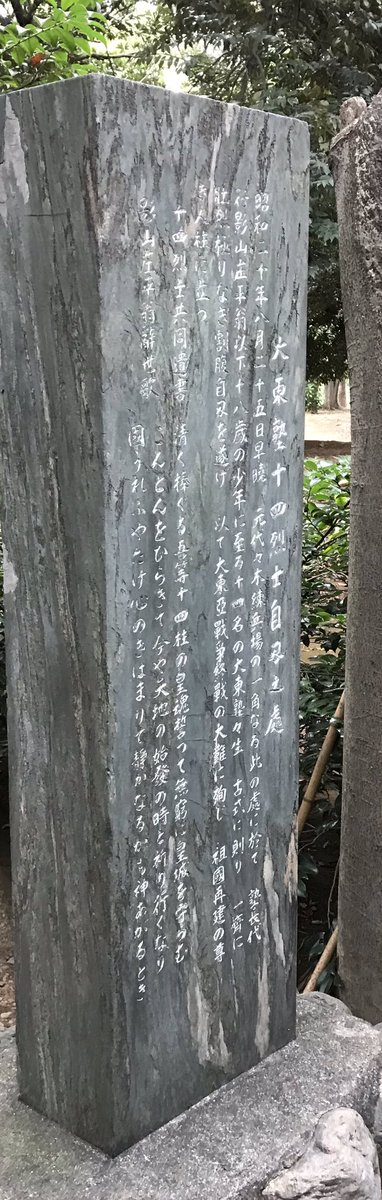 大東塾十四烈士自刃之處
昭和二十年八月二十五日早暁 元代々木練兵場の一角なる此の處に於て 塾長代
行影山庄平翁以下十八歳の少年に至る十四名の大東塾々生 古式に則り 一齊に
壮烈極りなき割腹自刃を遂げ 以て大東亞戰爭終戰の大難に殉じ 祖國再建の尊
き人柱に立つ
十四烈士共同遺書 清く捧ぐる吾等十四柱の皇魂誓つて無窮に皇城を守らむ
影山庄平翁辭世歌 こんとんをひらきて今や天地の始發の時と祈り行くなり
國うれふやたけ心のきはまりて靜かなるかも神あがるとき